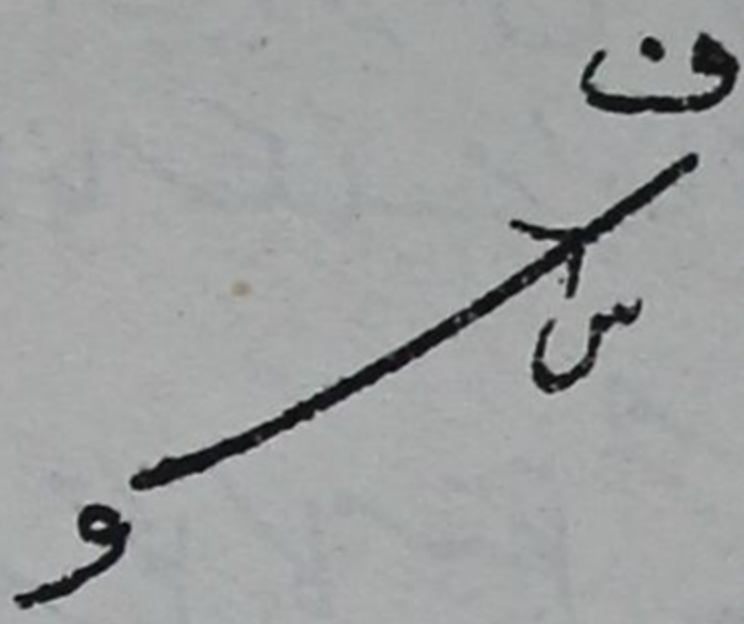 ف
س
و